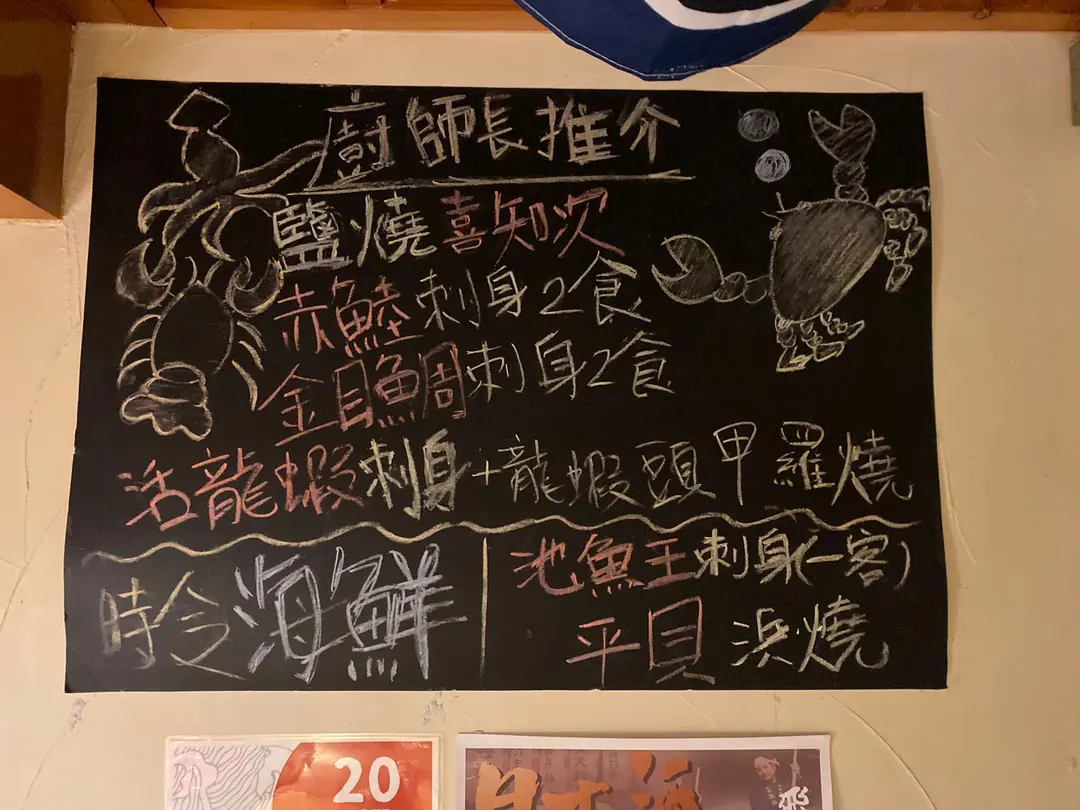 廚師長推介
鹽燒喜知次
赤鯥刺身2食
金目鯛刺身2食
活龍蝦刺身+龍蝦頭甲羅燒
時令海鮮
池魚王刺身(一客)
平貝浜燒
20